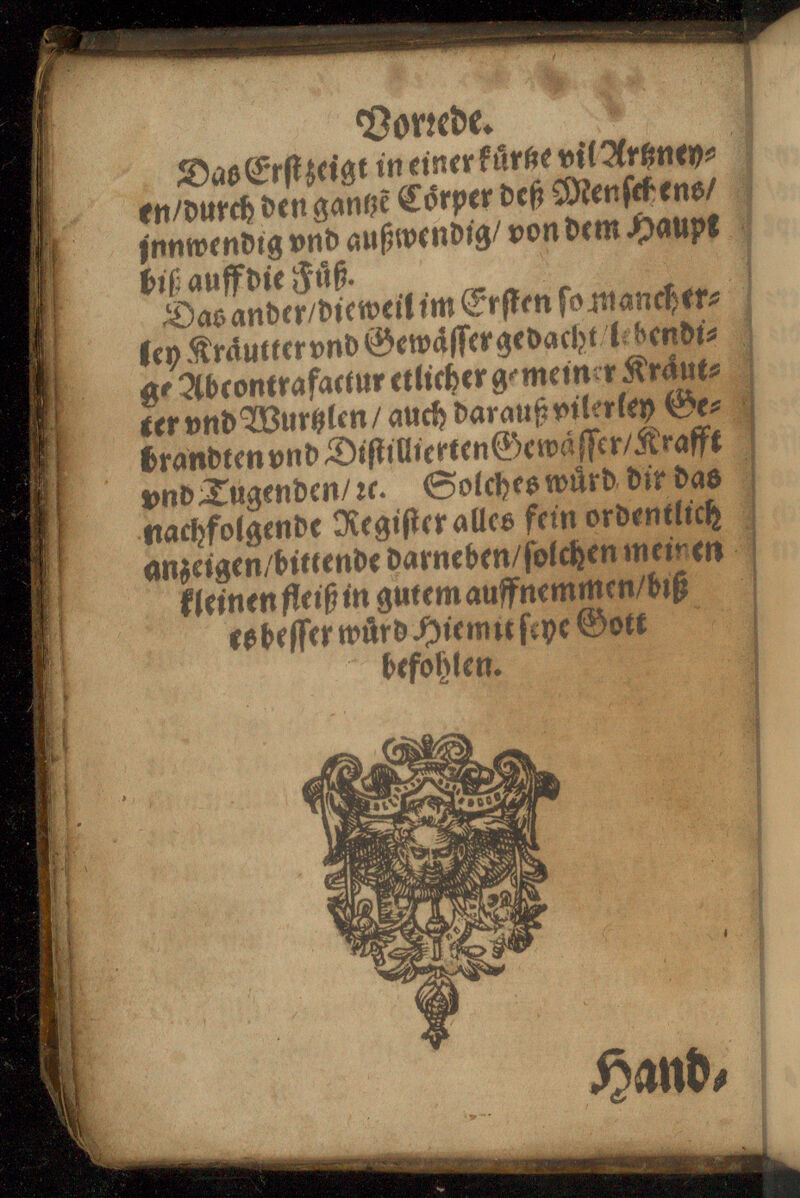 Vorꝛede.
Das Erſt zeigt in einer kuͤrtze vil Artzney⸗
en/durch den gantzē Coͤrper deß Menſchens/
jnnwendig vnd außwendig/ von dem Haupt
biß auff die Fuͤß.
Das ander/dieweil im Erſten ſo mancher⸗
ley Kraͤutter vnd Gewaͤſſer gedacht lebendi⸗
ge Abcontrafactur etlicher gemeiner Kraͤut⸗
ter vnd Wurtzlen / auch darauß vilerley Ge⸗
brandten vnd Diſtillierten Gewaͤſſer/Krafft
vnd Tugenden/ ꝛc. Solches wuͤrd dir das
nachfolgende Regiſter alles fein ordentlich
anzeigen/bittende darneben/ſolchen meinen
kleinen fleiß in gutem auffnemmen/biß
es beſſer wuͤrd Hiemit ſeye Gott
befohlen.
Hand⸗